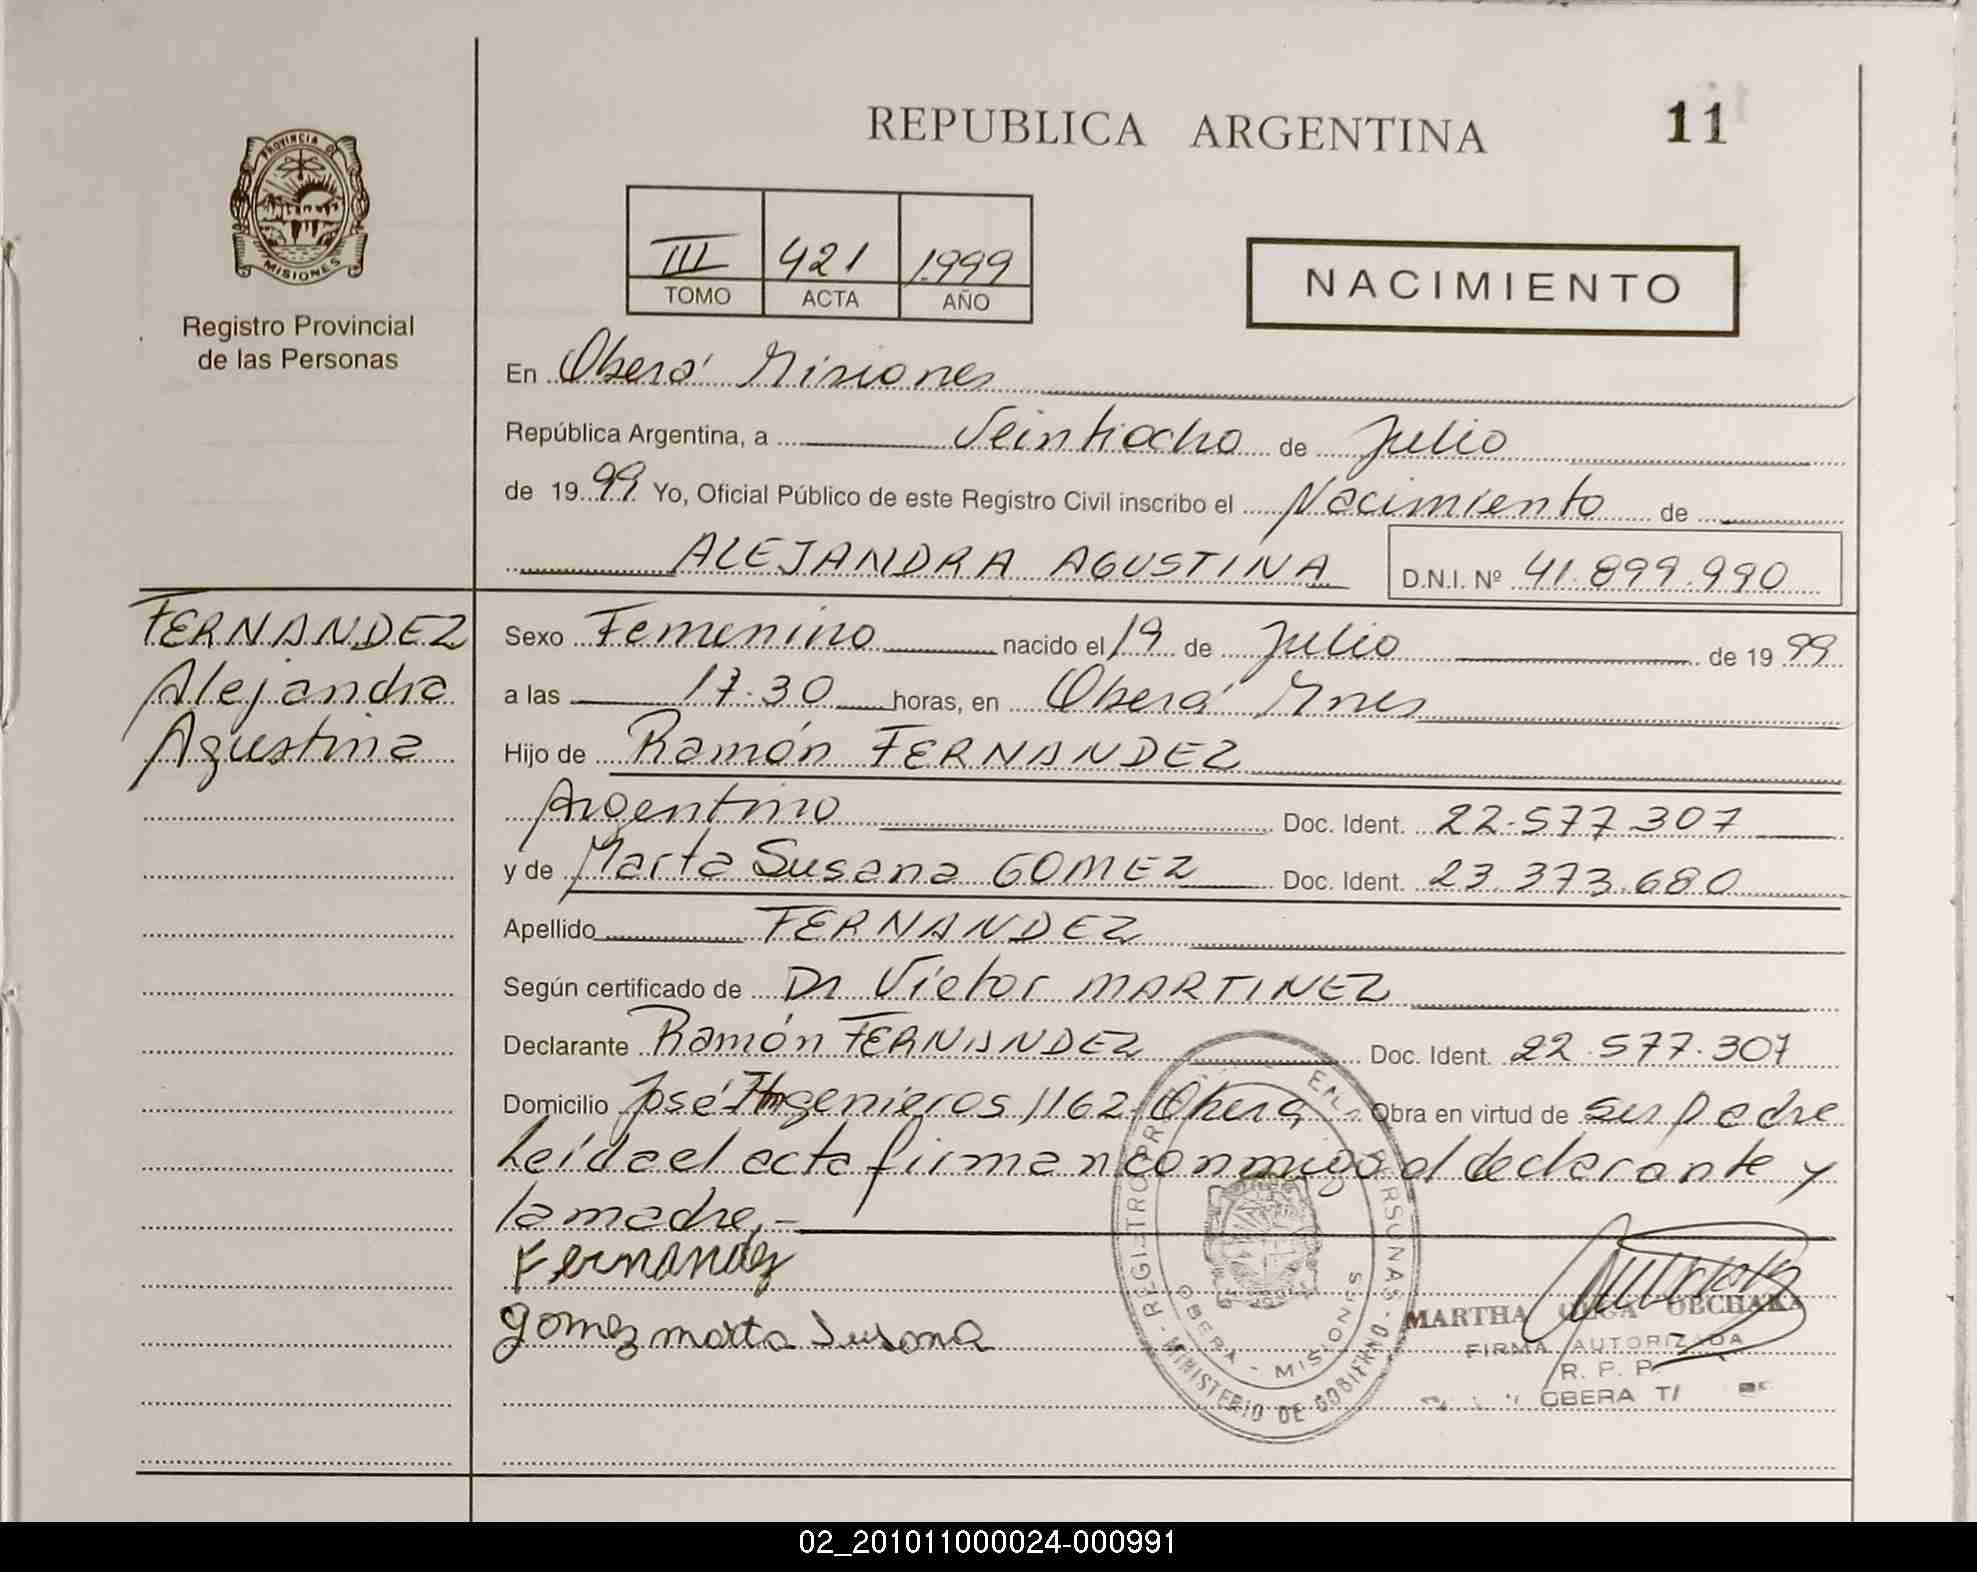 REPUBLICA ARGENTINA
11
PROVINCIA DE
MISIONES
Registro Provincial
de las Personas
III 421 1999
TOMO ACTA AÑO
NACIMIENTO
En Oberá Misiones
República Argentina, a Veintiocho de Julio
de 1999 Yo, Oficial Público de este Registro Civil inscribo el Nacimiento de
ALEJANDRA AGUSTINA D.N.I. Nº 41.899.990
FERNANDEZ
Alejandra
Agustina
Sexo Femenino nacido el 19 de Julio de 1999
a las 17.30 horas, en Oberá Mnes
Hijo de Ramón FERNANDEZ
Argentino Doc. Ident. 22.577.307
y de Marta Susana GOMEZ Doc. Ident. 23.373.680
Apellido FERNANDEZ
Según certificado de Dr Victor MARTINEZ
Declarante Ramón FERNANDEZ Doc. Ident. 22.577.307
Domicilio José Ingenieros 1162 Oberá Obra en virtud de ser padre
Leída el acta firman conmigo el declarante y
la madre.-
Fernandez
gomez marta Susana
MINISTERIO DE GOBIERNO
OBERA - MISIONES
MARTHA OLGA
FIRMA AUTORIZADA
R. P. P.
OBERA
02_201011000024-000991